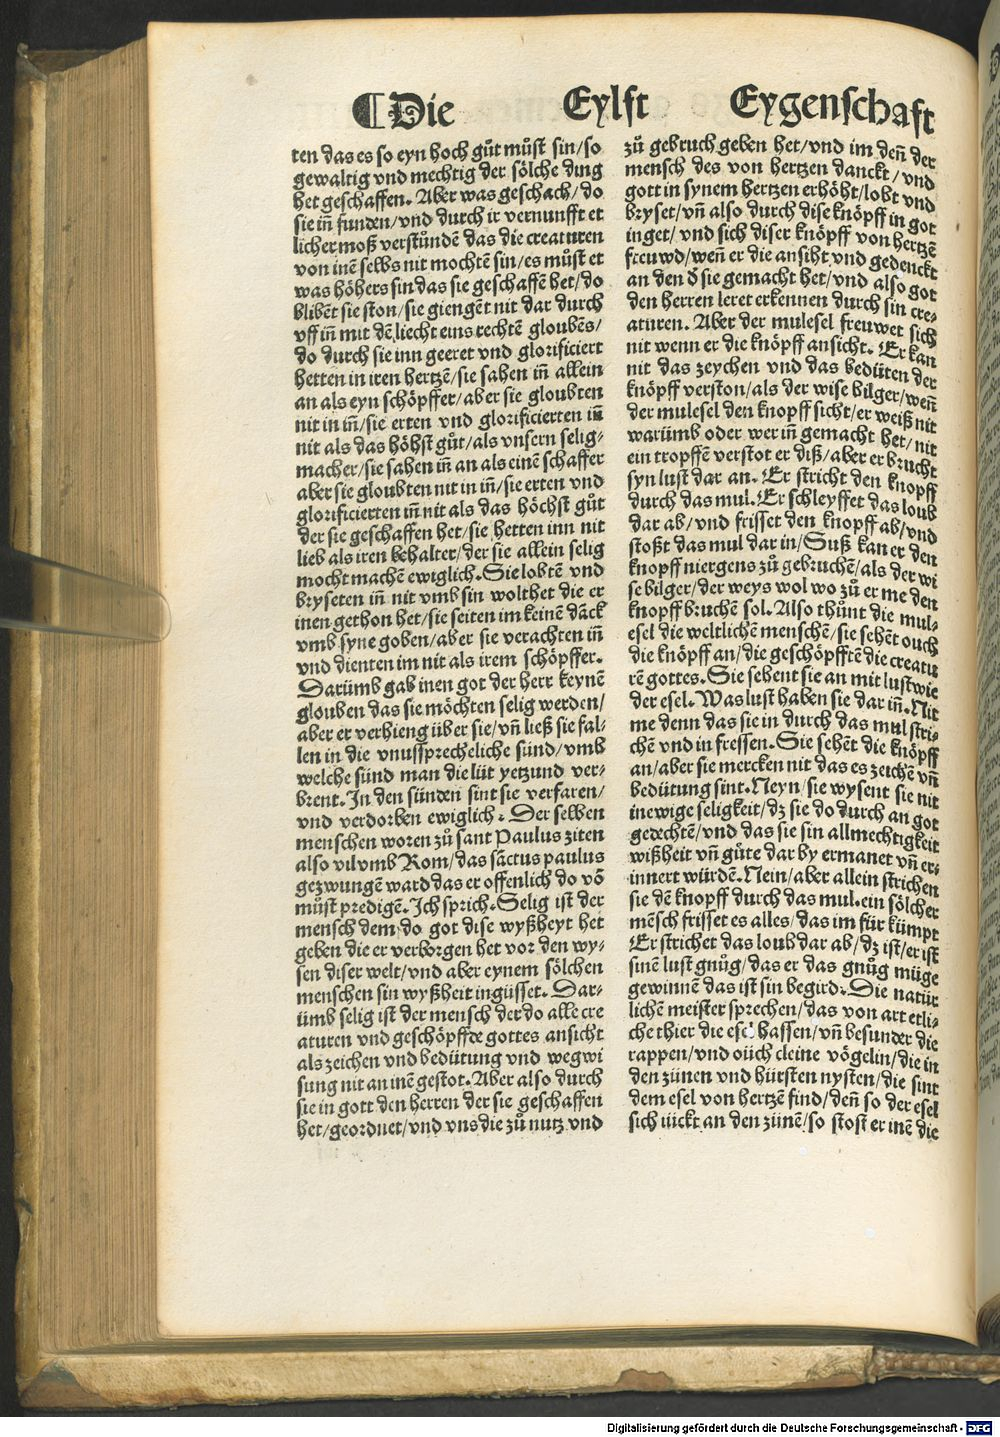 ¶Die Eylft Eygenschaft
ten das es so eyn hoch gůt můst sin/so
gewaltig vnd mechtig der sölche ding
het geschaffen. Aber was geschach/do
sie in̄ funden/vnd durch ir vernunfft et
licher moß verstůndē das die creaturen
von inē selbs nit mochtē sin/es můst et
was höhers sin das sie geschaffē het/do
blibēt sie ston/sie giengēt nit dar durch
vff in̄ mit dē liecht eins rechtē gloubēs/
do durch sie inn geeret vnd glorificiert
hetten in iren hertzē/sie sahen in̄ allein
an als eyn schöpffer/aber sie gloubten
nit in in̄/sie erten vnd glorificierten in̄
nit als das höhst gůt/als vnsern selig-
macher/sie sahen in̄ an als einē schaffer
aber sie gloubten nit in in̄/sie erten vnd
glorificierten in̄ nit als das höchst gůt
der sie geschaffen het/sie hetten inn nit
lieb als iren behalter/der sie allein selig
mocht machē ewiglich. Sie lobtē vnd
bryseten in̄ nit vmb sin wolthet die er
inen gethon het/sie seiten im keinē danck
vmb syne goben/aber sie verachten in̄
vnd dienten im nit als irem schöpffer.
Darümb gab inen got der herr keynē
glouben das sie möchten selig werden/
aber er verhieng über sie/vn̄ ließ sie fal-
len in die vnussprecheliche sünd/vmb
welche sünd man die lüt yetzund ver-
brent. In den sünden sint sie verfaren/
vnd verdorben ewiglich. Der selben
menschen woren zů sant Paulus ziten
also vil vmb Rom/das sāctus paulus
gezwungē ward das er offenlich do vō
můst predigē. Ich sprich. Selig ist der
mensch dem do got dise wyßheyt het
geben die er verborgen het vor den wy-
sen diser welt/vnd aber eynem sölchen
menschen sin wyßheit ingüsset. Dar-
ümb selig ist der mensch der do alle cre
aturen vnd geschöpffde gottes ansicht
als zeichen vnd bedütung vnd wegwi
sung nit an inē gestot. Aber also durch
sie in gott den herren der sie geschaffen
het/geordnet/vnd vns die zů nutz vnd
zů gebruch geben het/vnd im den̄ der
mensch des von hertzen danckt/vnd
gott in synem hertzen erhöht/lobt vnd
bryset/vn̄ also durch dise knöpff in got
inget/vnd sich diser knöpff von hertzē
freuwd/wen̄ er die ansiht vnd gedenckt
an den d̄ sie gemacht het/vnd also got
den herren leret erkennen durch sin cre-
aturen. Aber der mulesel freuwet sich
nit wenn er die knöpff ansicht. Er kan
nit das zeychen vnd das bedüten der
knöpff verston/als der wise bilger/wen̄
der mulesel den knopff sicht/er weiß nit
warümb oder wer in̄ gemacht het/nit
ein tropffē verstot er diß/aber er brucht
syn lust dar an. Er stricht den knopff
durch das mul. Er schleyffet das loub
dar ab/vnd frisset den knopff ab/vnd
stoßt das mul dar in/Suß kan er den
knopff niergens zů gebruchē/als der wi
se bilger/der weys wol wo zů er me den
knopff bruchē sol. Also thůnt die mul-
esel die weltlichē menschē/sie sehēt ouch
die knöpff an/die geschöpfftē die creatu
rē gottes. Sie sehent sie an mit lust wie
der esel. Was lust haben sie dar in̄. Nit
me denn das sie in durch das mul stri-
chē vnd in fressen. Sie sehēt die knöpff
an/aber sie mercken nit das es zeichē vn̄
bedütung sint. Neyn/sie wysent sie nit
in ewige seligkeit/dz sie do durch an got
gedechtē/vnd das sie sin allmechtigkeit
wißheit vn̄ gůte dar by ermanet vn̄ er-
innert würdē. Nein/aber allein strichen
sie dē knopff durch das mul. ein sölcher
mēsch frisset es alles/das im für kümpt
Er strichet das loub dar ab/dz ist/er ist
sinē lust gnůg/das er das gnůg müge
gewinnē das ist sin begird. Die natür
lichē meister sprechen/das von art etli-
che thier die esel hassen/vn̄ besunder die
rappen/vnd oüch cleine vögelin/die in
den zünen vnd hürsten nysten/die sint
dem esel von hertzē find/den̄ so der esel
sich iückt an den zünē/so stost er inē die
Digitalisierung gefördert durch die Deutsche Forschungsgemeinschaft - DFG